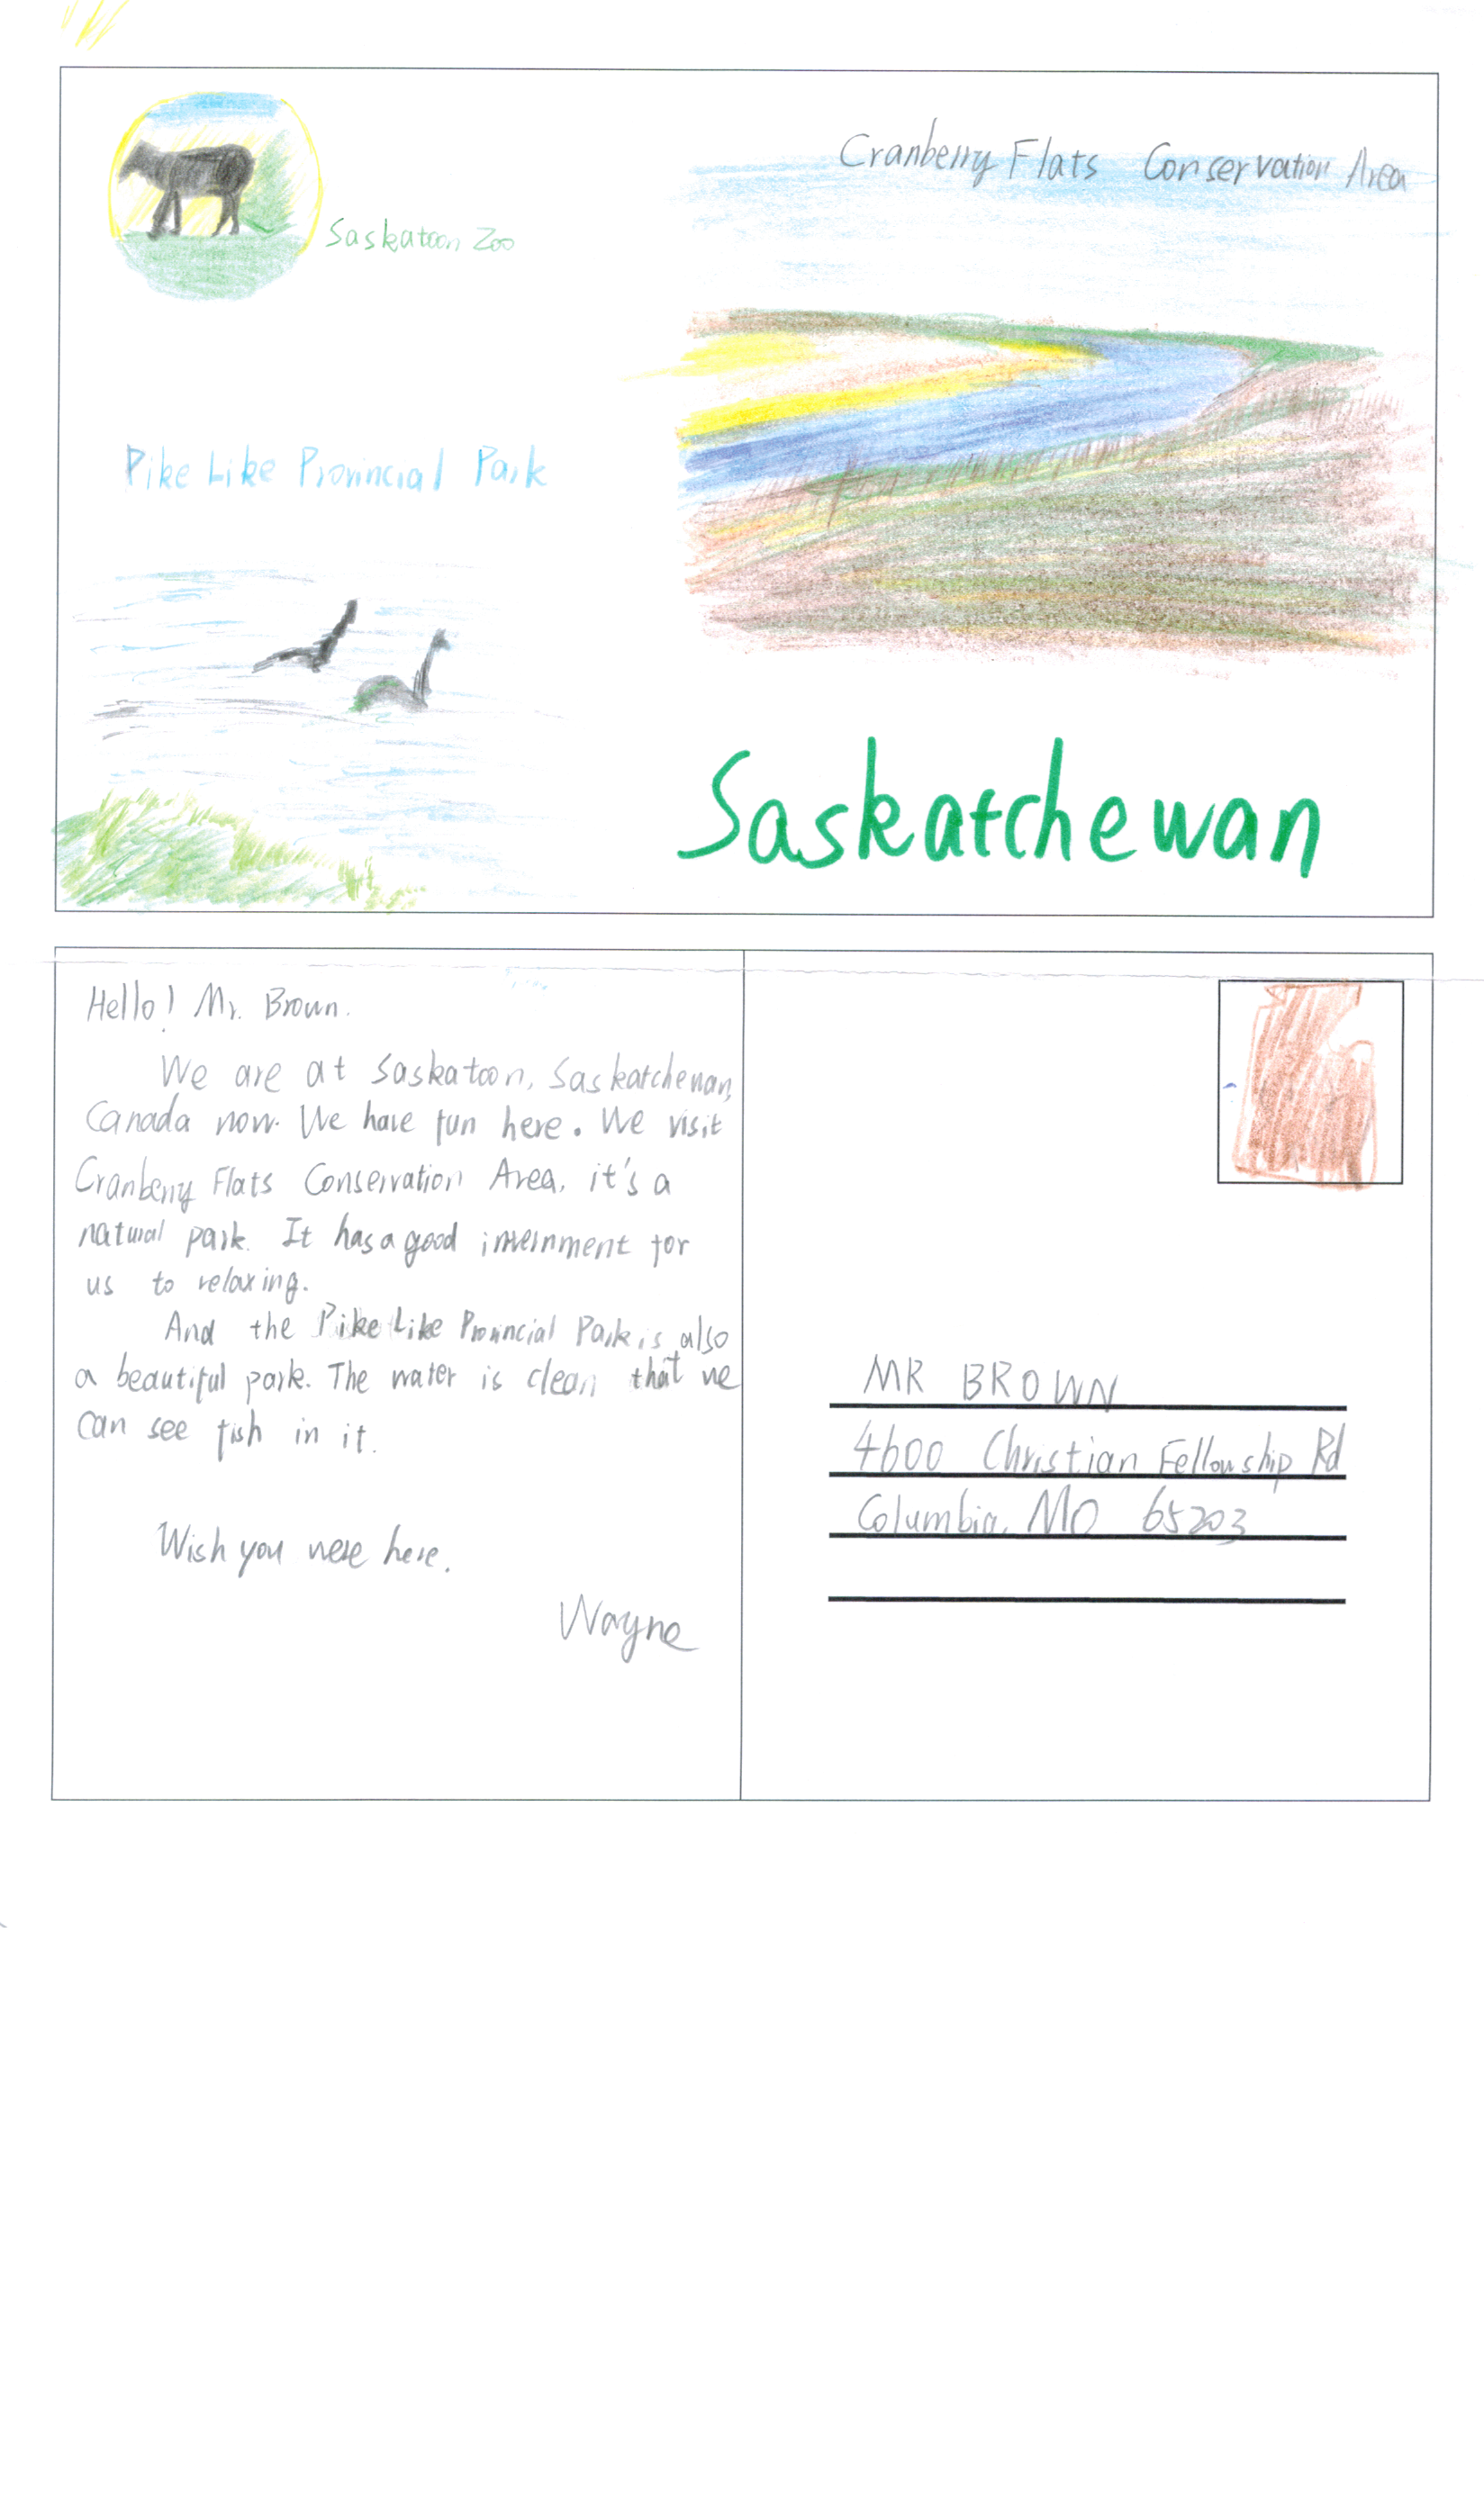 Cranberry Flats Conservation Area
Saskatoon Zoo
Pike Like Provincial Park
Saskatchewan
Hello! Mr. Brown.
We are at Saskatoon, Saskatchewan,
Canada now. We have fun here. We visit
Cranberry Flats Conservation Area, it's a
natural park. It has a good for
us to relaxing.
And the Pike Like Provincial Park is also
a beautiful park. The water is clean that we
can see fish in it.
Wish you were here.
Wayne
MR BROWN
4600 Christian Fellowship Rd
Columbia, MO 65203